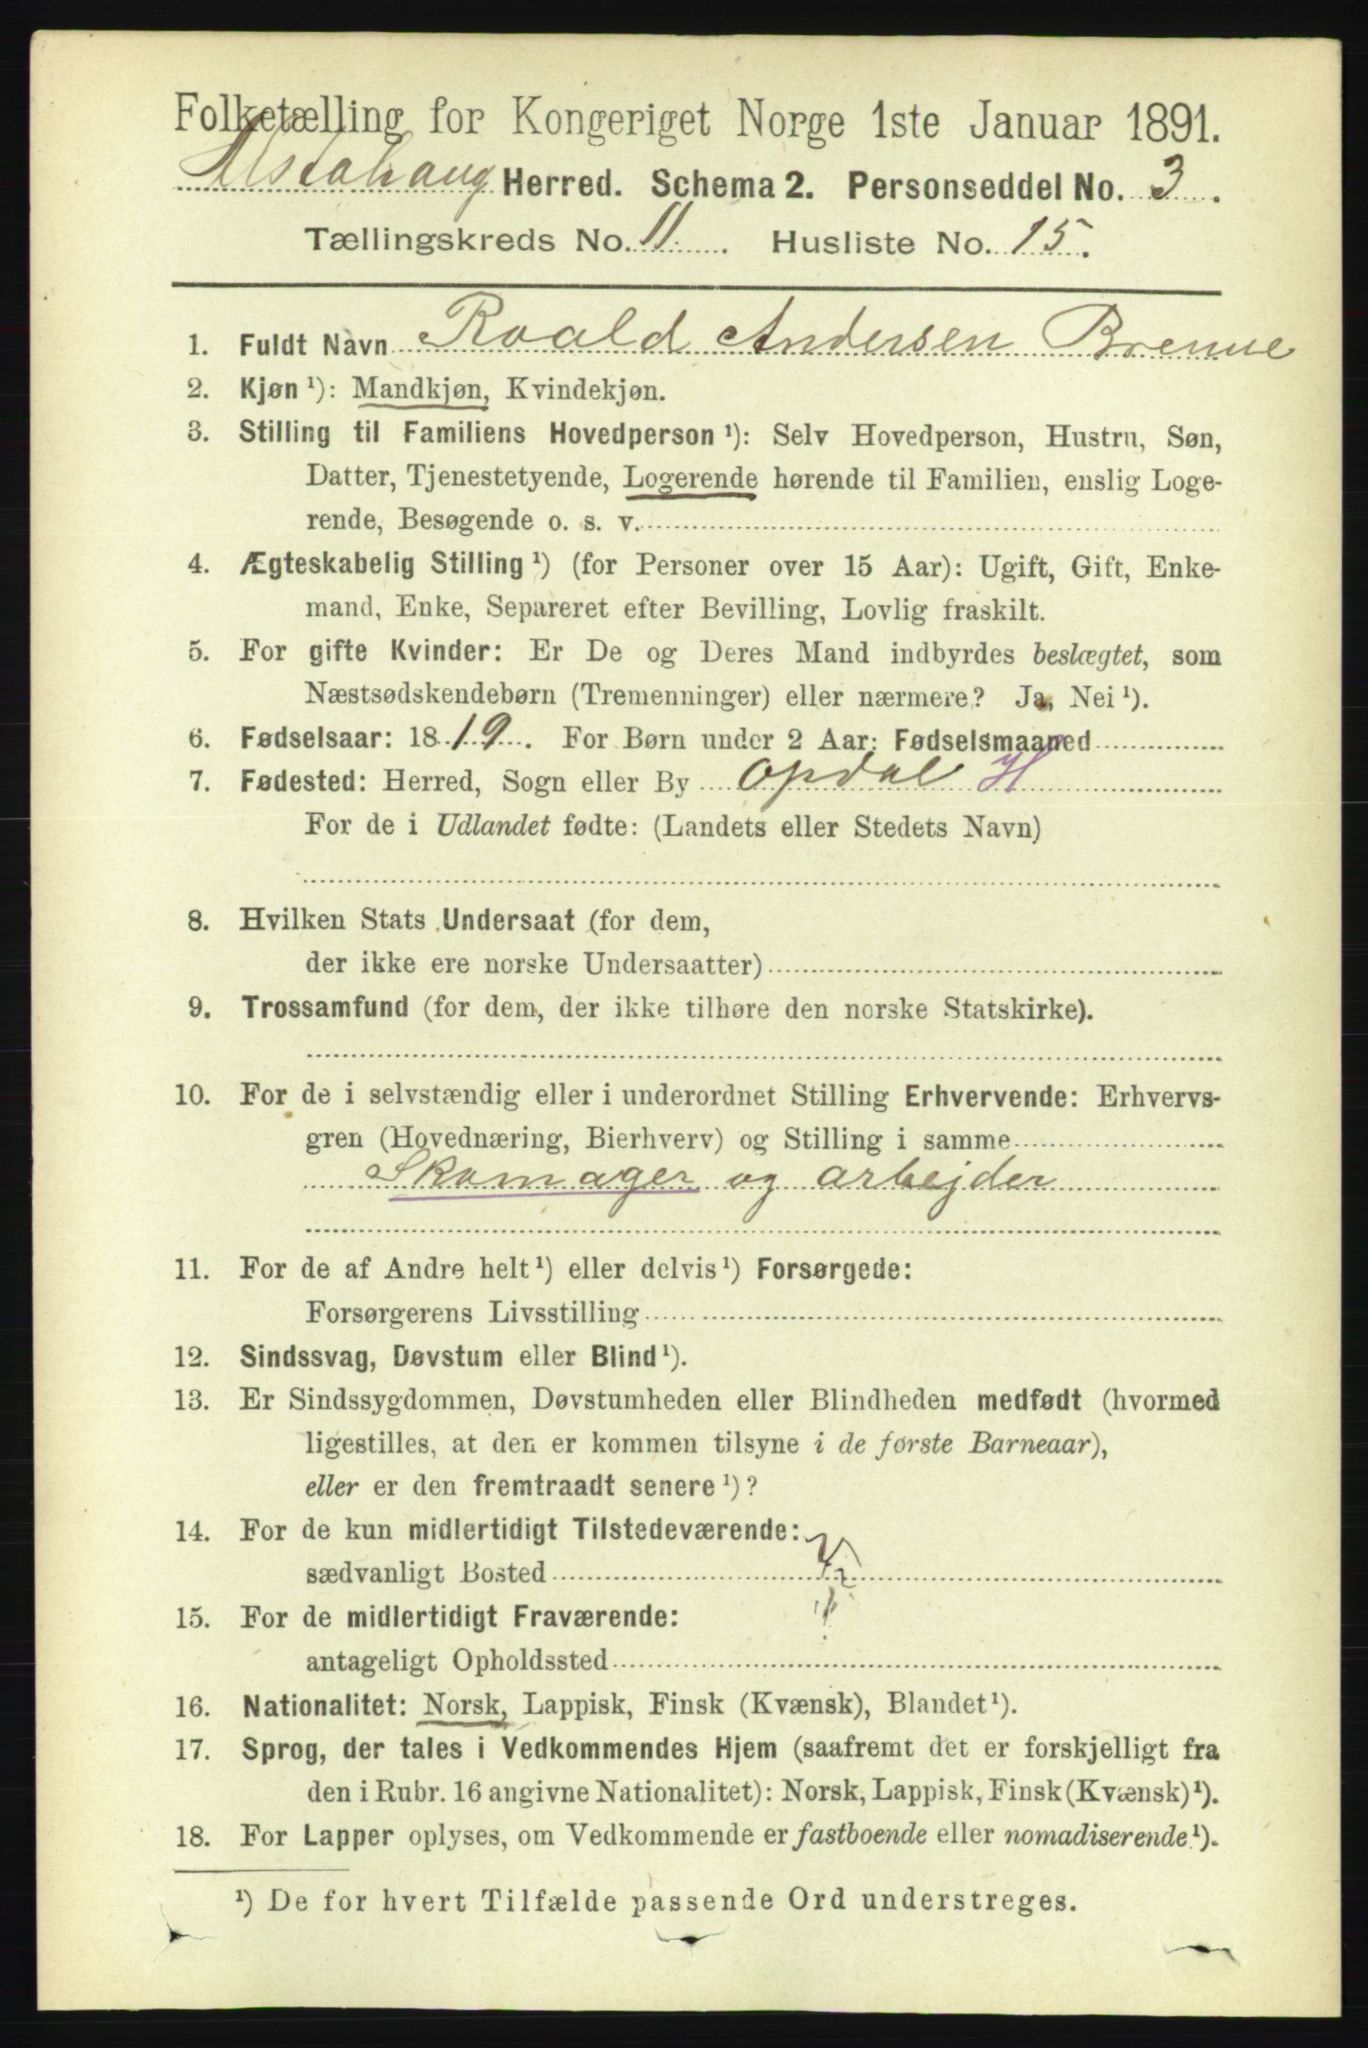 Folketælling for Kongeriget Norge 1ste Januar 1891.
Alstahaug Herred. Schema 2. Personseddel No. 3.
Tællingskreds No. 11. Husliste No. 15.
1. Fuldt Navn Roald Andersen Brenne
2. Kjøn ¹): Mandkjøn, Kvindekjøn.
3. Stilling til Familiens Hovedperson ¹): Selv Hovedperson, Hustru, Søn,
Datter, Tjenestetyende, Logerende hørende til Familien, enslig Loge-
rende, Besøgende o. s. v.
4. Ægteskabelig Stilling ¹) (for Personer over 15 Aar): Ugift, Gift, Enke-
mand, Enke, Separeret efter Bevilling, Lovlig fraskilt.
5. For gifte Kvinder: Er De og Deres Mand indbyrdes beslægtet, som
Næstsødskendebørn (Tremenninger) eller nærmere? Ja, Nei ¹).
6. Fødselsaar: 1819. For Børn under 2 Aar: Fødselsmaaned
7. Fødested: Herred, Sogn eller By Opdal H
For de i Udlandet fødte: (Landets eller Stedets Navn)
8. Hvilken Stats Undersaat (for dem,
der ikke ere norske Undersaatter)
9. Trossamfund (for dem, der ikke tilhøre den norske Statskirke).
10. For de i selvstændig eller i underordnet Stilling Erhvervende: Erhvervs-
gren (Hovednæring, Bierhverv) og Stilling i samme
Skomager og arbejder
11. For de af Andre helt ¹) eller delvis ¹) Forsørgede:
Forsørgerens Livsstilling
12. Sindssvag, Døvstum eller Blind ¹).
13. Er Sindssygdommen, Døvstumheden eller Blindheden medfødt (hvormed
ligestilles, at den er kommen tilsyne i de første Barneaar),
eller er den fremtraadt senere ¹)?
14. For de kun midlertidigt Tilstedeværende:
sædvanligt Bosted
15. For de midlertidigt Fraværende:
antageligt Opholdssted
16. Nationalitet: Norsk, Lappisk, Finsk (Kvænsk), Blandet ¹).
17. Sprog, der tales i Vedkommendes Hjem (saafremt det er forskjelligt fra
den i Rubr. 16 angivne Nationalitet): Norsk, Lappisk, Finsk (Kvænsk) ¹).
18. For Lapper oplyses, om Vedkommende er fastboende eller nomadiserende ¹).
¹) De for hvert Tilfælde passende Ord understreges.